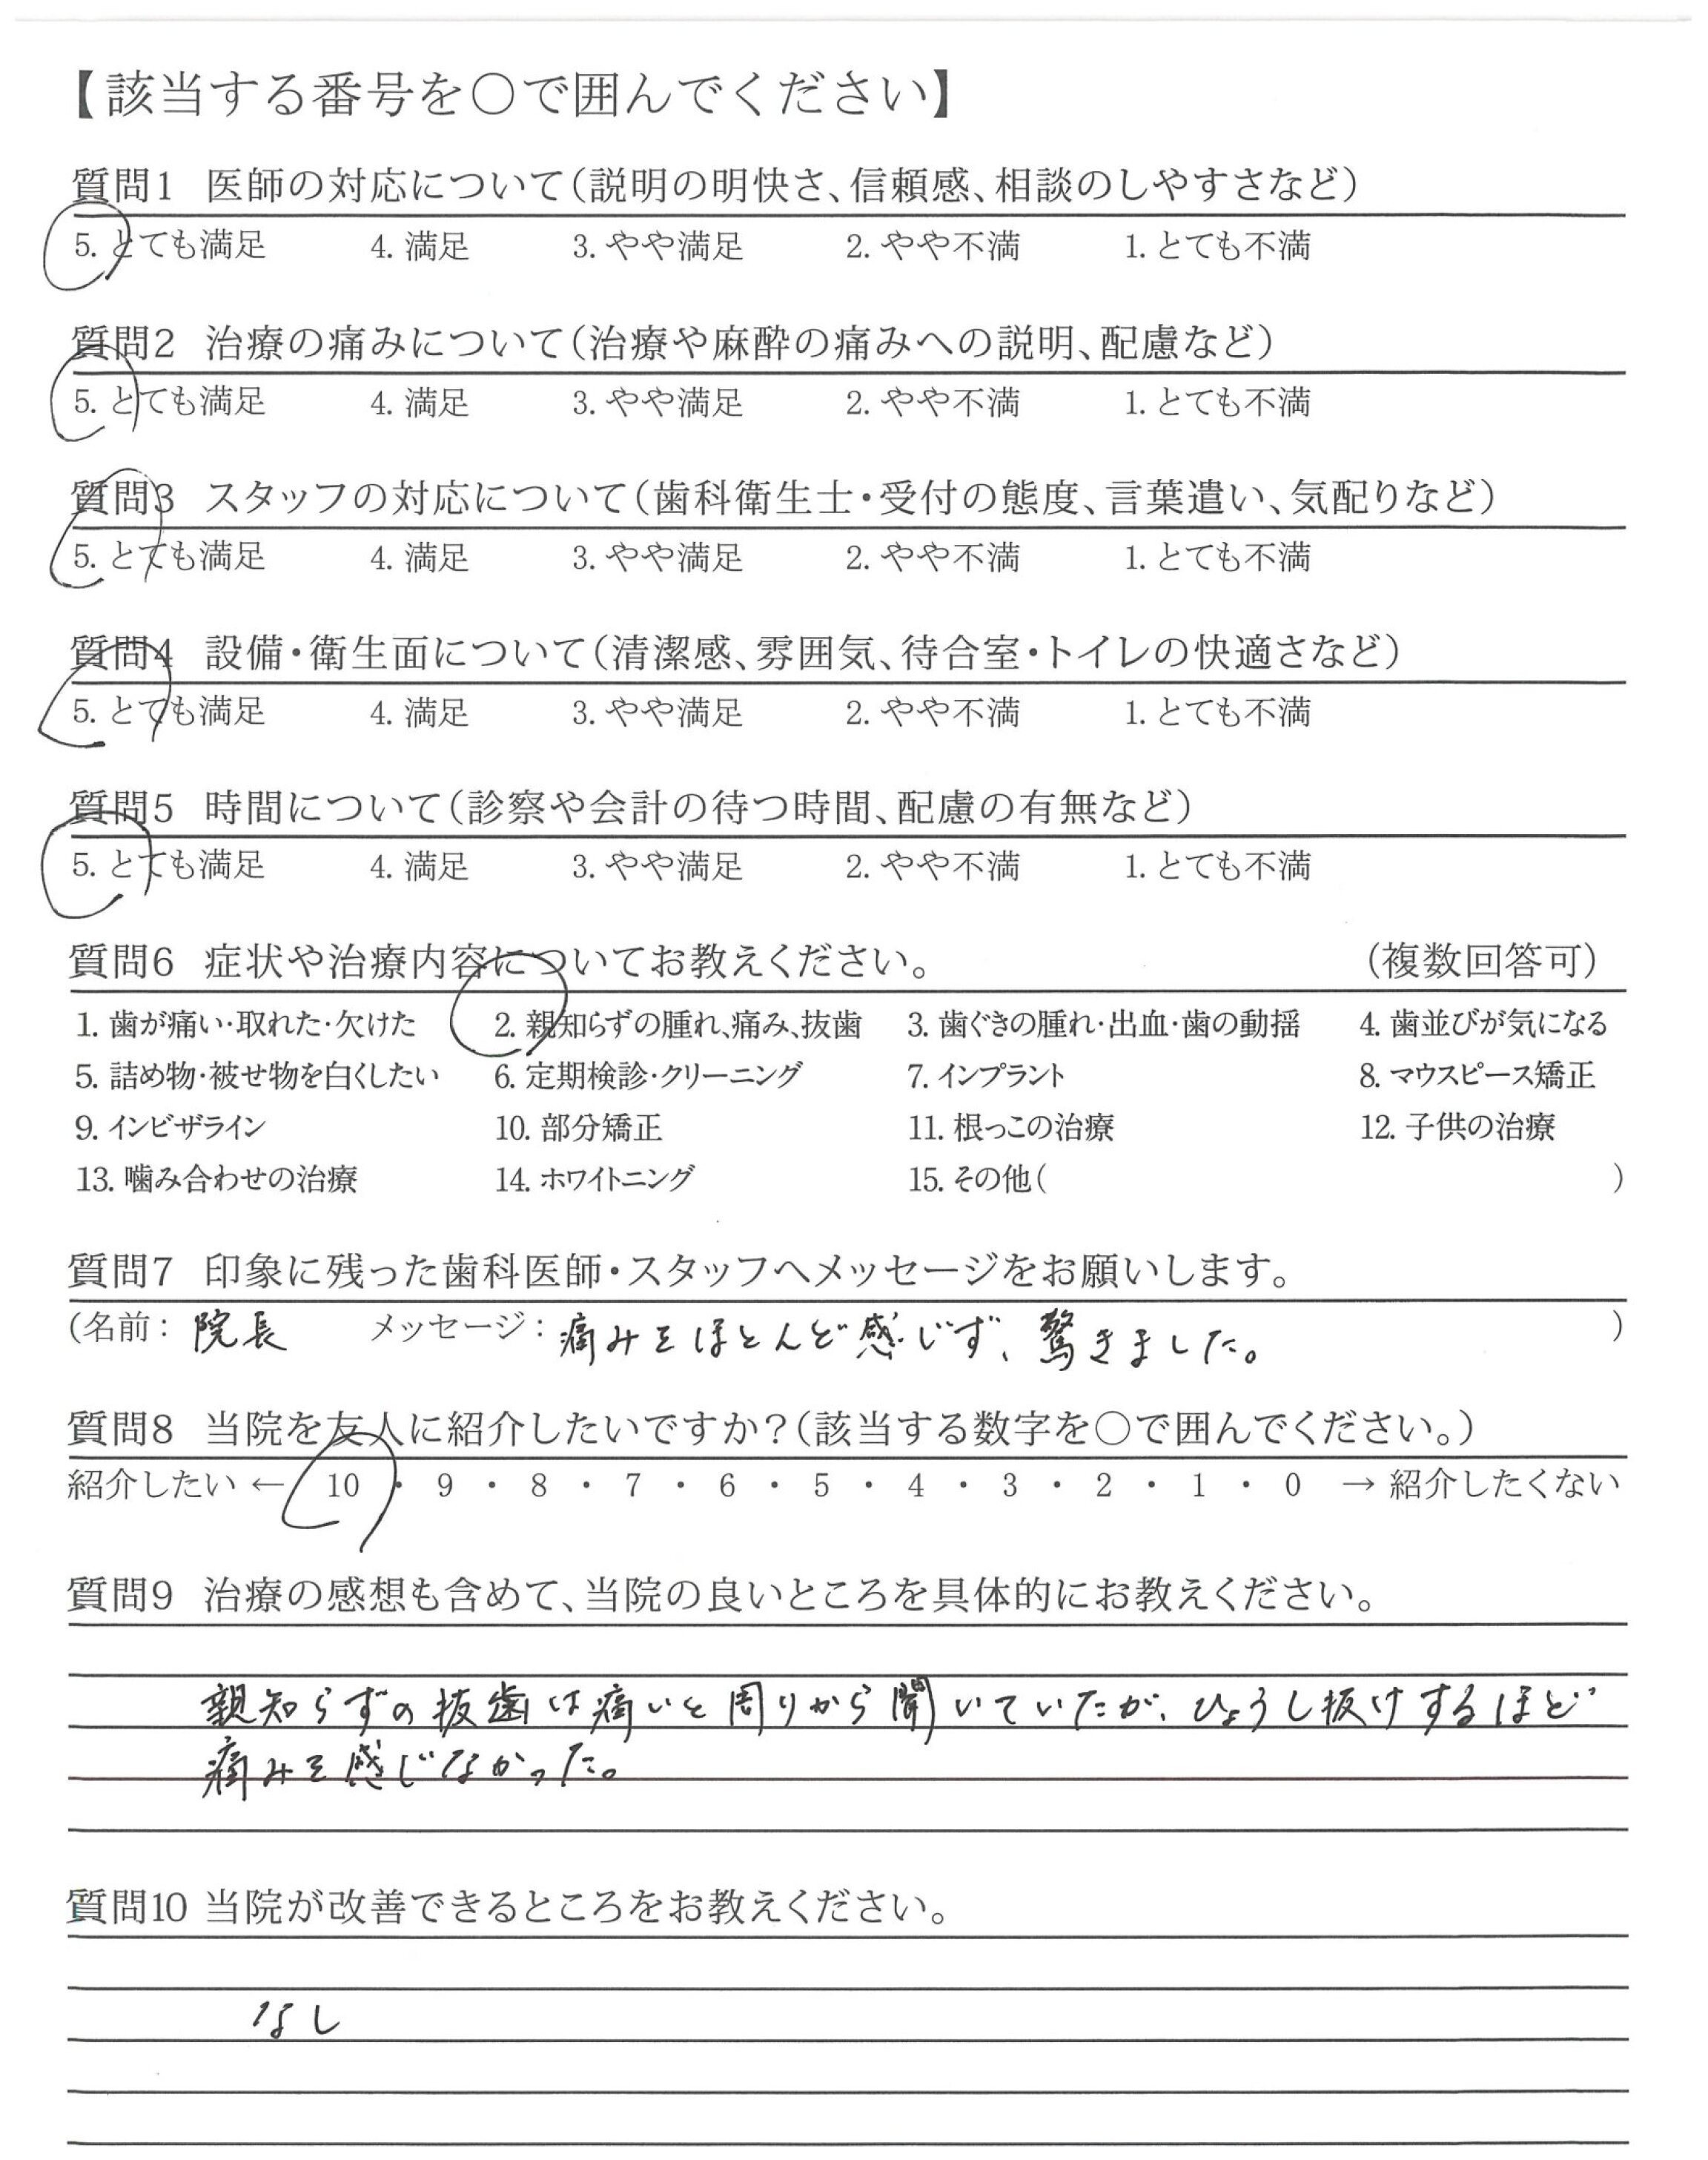 【該当する番号を〇で囲んでください】
質問1 医師の対応について（説明の明快さ、信頼感、相談のしやすさなど）
5. とても満足 4. 満足 3. やや満足 2. やや不満 1. とても不満
質問2 治療の痛みについて（治療や麻酔の痛みへの説明、配慮など）
5. とても満足 4. 満足 3. やや満足 2. やや不満 1. とても不満
質問3 スタッフの対応について（歯科衛生士・受付の態度、言葉遣い、気配りなど）
5. とても満足 4. 満足 3. やや満足 2. やや不満 1. とても不満
質問4 設備・衛生面について（清潔感、雰囲気、待合室・トイレの快適さなど）
5. とても満足 4. 満足 3. やや満足 2. やや不満 1. とても不満
質問5 時間について（診察や会計の待つ時間、配慮の有無など）
5. とても満足 4. 満足 3. やや満足 2. やや不満 1. とても不満
質問6 症状や治療内容についてお教えください。 （複数回答可）
1. 歯が痛い・取れた・欠けた 2. 親知らずの腫れ、痛み、抜歯 3. 歯ぐきの腫れ・出血・歯の動揺 4. 歯並びが気になる
5. 詰め物・被せ物を白くしたい 6. 定期検診・クリーニング 7. インプラント 8. マウスピース矯正
9. インビザライン 10. 部分矯正 11. 根っこの治療 12. 子供の治療
13. 噛み合わせの治療 14. ホワイトニング 15. その他（ ）
質問7 印象に残った歯科医師・スタッフへメッセージをお願いします。
（名前： 院長 メッセージ： 痛みをほとんど感じず、驚きました。 ）
質問8 当院を友人に紹介したいですか？（該当する数字を〇で囲んでください。）
紹介したい ← 10 ・ 9 ・ 8 ・ 7 ・ 6 ・ 5 ・ 4 ・ 3 ・ 2 ・ 1 ・ 0 → 紹介したくない
質問9 治療の感想も含めて、当院の良いところを具体的にお教えください。
親知らずの抜歯は痛いと周りから聞いていたが、ひょうし抜けするほど
痛みを感じなかった。
質問10 当院が改善できるところをお教えください。
なし